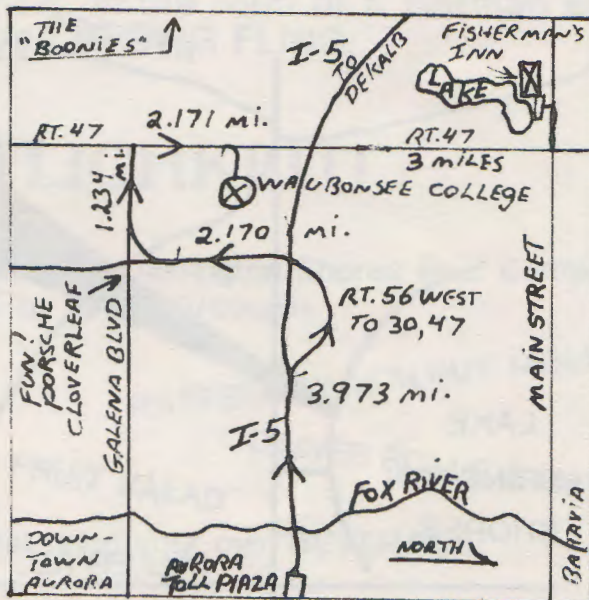 THE
"BOONIES"
I-5
TO
DEKALB
FISHERMAN'S
INN
LAKE
RT. 47
2.171 mi.
RT. 47
3 MILES
WAUBONSEE COLLEGE
1.234 mi.
2.170 mi.
RT. 56 WEST
TO 30,47
FUN!
PORSCHE
CLOVERLEAF
GALENA BLVD
MAIN STREET
3.973 mi.
I-5
FOX RIVER
DOWN-
TOWN
AURORA
AURORA
TOLL PLAZA
NORTH
BATAVIA